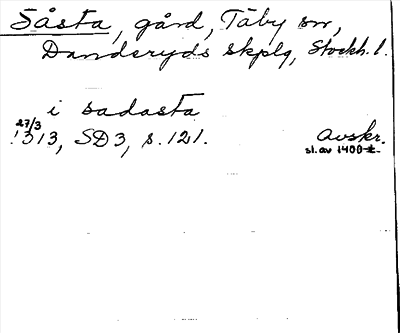 Såsta, gård, Täby sn,
Danderyds skplg, Stockh. l.
i sadasta
27/3
1313, SD 3, s. 121. Avskr.
sl. av 1400-t.